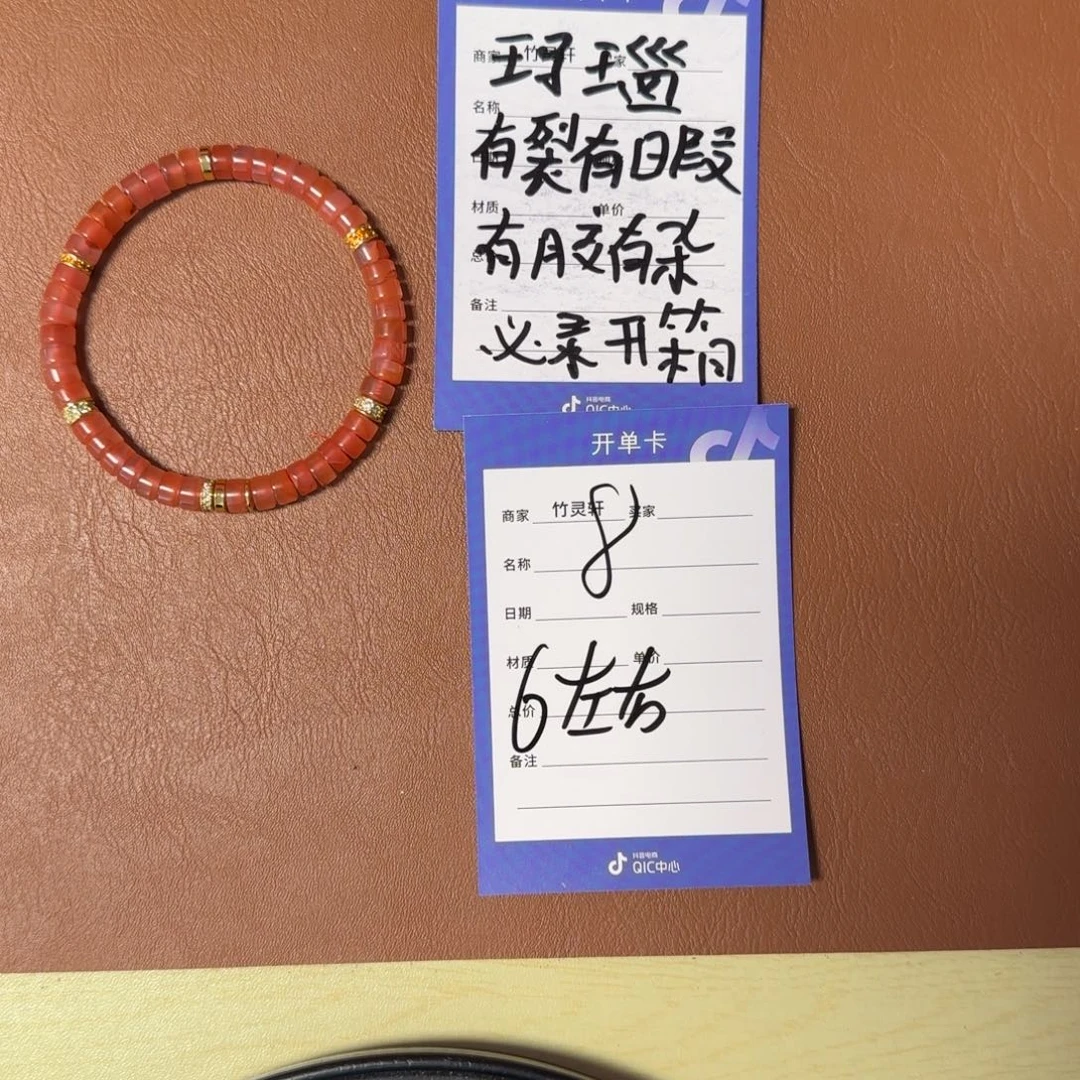 商家 竹灵轩 家
玛瑙
名称
有裂有暇
材质 单价
有胶有杂
总
备注
必录开箱
抖音电商
QIC中心
开单卡
商家 竹灵轩 买家
8
名称
日期 规格
材质 单价
6左右
总价
备注
抖音电商
QIC中心